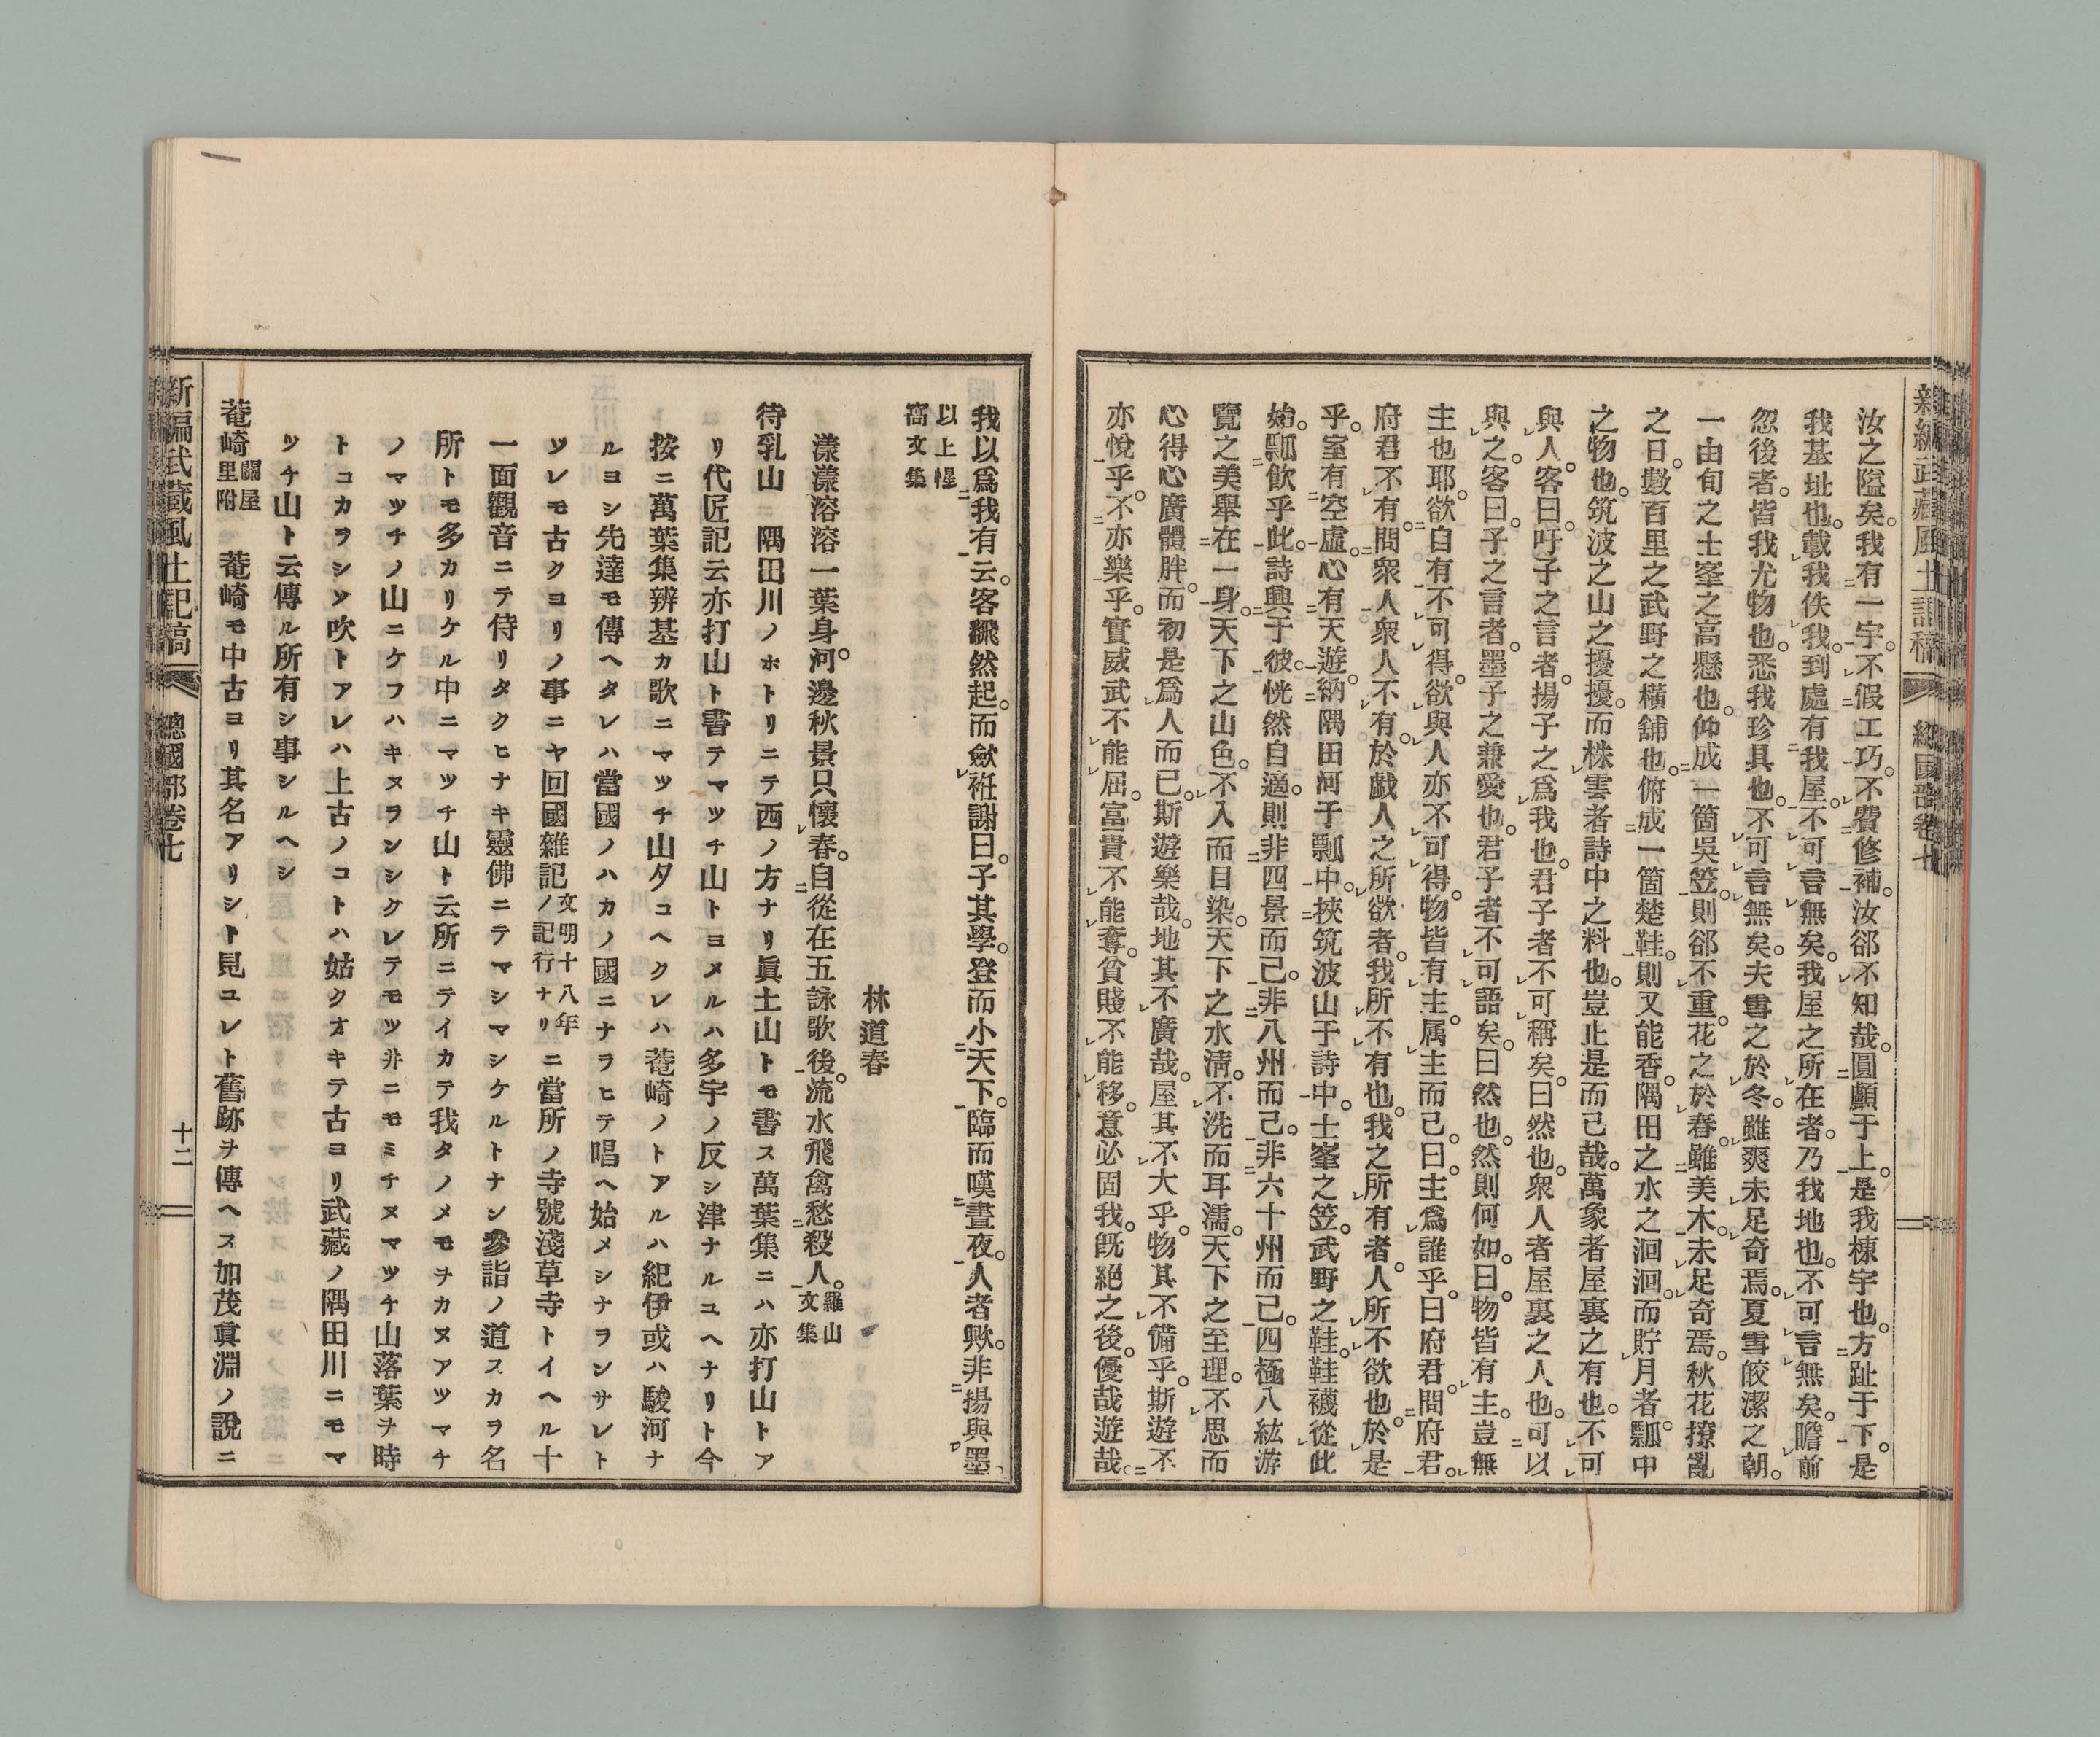 新編武藏風土記稿 總國部卷七
汝之隘矣。我有一宇。不假工巧。不費修補。汝郤不知哉。圓顱于上。是我棟宇也。方趾于下。是
我基址也。載我佚我。到處有我屋。不可言無矣。我屋之所在者。乃我地也。不可言無矣。瞻前
忽後者。皆我尤物也。悉我珍具也。不可言無矣。夫雪之於冬。雖爽未足奇焉。夏雪皎潔之朝。
一由旬之士峯之高懸也。仰成一箇吳笠。則郤不重。花之於春。雖美木。未足奇焉。秋花撩亂
之日。數百里之武野之橫舖也。俯成一箇楚鞋。則又能香。隅田之水之洄洄。而貯月者。瓢中
之物也。筑波之山之擾擾。而株雲者詩中之料也。豈止是而已哉。萬象者屋裏之有也。不可
與人。客曰。吁子之言者。揚子之爲我也。君子者不可稱矣。曰然也。衆人者屋裏之人也。可以
與之。客曰。子之言者。墨子之兼愛也。君子者不可語矣。曰然也。然則何如。曰物皆有主。豈無
主也耶。欲自有不可得。欲與人亦不可得。物皆有主。属主而已。曰。主爲誰乎。曰府君。問府君。
府君不有。問衆人。衆人不有。於戯人之所欲者。我所不有也。我之所有者。人所不欲也。於是
乎。室有空虛。心有天遊。納隅田河于瓢中。挾筑波山于詩中。士峯之笠。武野之鞋。鞋襪從此
始。瓢飮乎此。詩興于彼。恍然自適。則非四景而已。非八州而已。非六十州而已。四極八紘游
覽之美擧在一身。天下之山色。不入而目染。天下之水淸。不洗而耳濡。天下之至理。不思而
心得。心廣體胖。而初是爲人而已。斯遊樂哉。地其不廣哉。屋其不大乎。物其不備乎。斯遊不
亦悅乎。不亦樂乎。實威武不能屈。富貴不能奪。貧賤不能移。意必固我。旣絕之後。優哉遊哉。
我以爲我有云。客飜然起。而斂袵謝曰。子其學。登而小天下。臨而嘆晝夜。人者歟。非揚與墨。
以上惺
窩文集
林道春
漾漾溶溶一葉身。河邊秋景只懷春。自從在五詠歌後。流水飛禽愁殺人。羅山文集
待乳山 隅田川ノホトリニテ西ノ方ナリ眞土山トモ書ス萬葉集ニハ亦打山トア
リ代匠記云亦打山ト書テマツチ山トヨメルハ多宇ノ反シ津ナルユヘナリト今
按ニ萬葉集辨基カ歌ニマツチ山夕コヘクレハ菴崎ノトアルハ紀伊或ハ駿河ナ
ルヨシ先達モ傳ヘタレハ當國ノハカノ國ニナラヒテ唱ヘ始メシナランサレト
ツレモ古クヨリノ事ニヤ回國雜記文明十八年ノ記行ナリニ當所ノ寺號淺草寺トイヘル十
一面觀音ニテ侍リタクヒナキ靈佛ニテマシマシケルトナン參詣ノ道スカラ名
所トモ多カリケル中ニマツチ山ト云所ニテイカテ我タノメモヲカヌアツマチ
ノマツチノ山ニケフハキヌランシクレテモツヰニモミチヌマツチ山落葉ヲ時
トコカヲシソ吹トアレハ上古ノコトハ姑クオキテ古ヨリ武藏ノ隅田川ニモマ
ツチ山ト云傳ル所有シ事シルヘシ
菴崎關屋里附 菴崎モ中古ヨリ其名アリシト見ユレト舊跡ヲ傳ヘス加茂眞淵ノ說ニ
新編武藏風土記稿 總國部卷七 十二